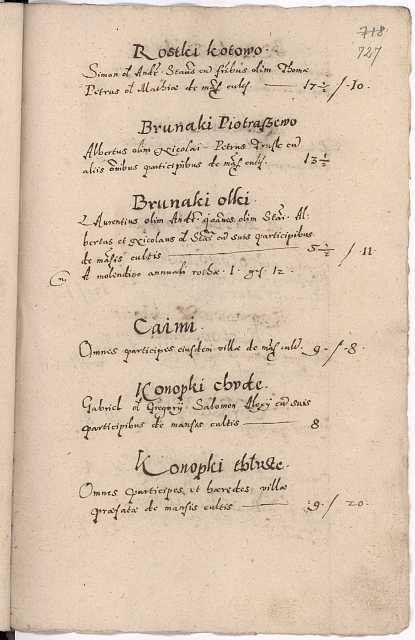 718
727
Rostki kotowo.
Simon ol Andr. Stan. cu fribus olim Thomæ
Petrus ol Mathiæ de mans. cult. — 17 ½ / -10.
Brunaki Piotraszewo
Albertus olim Nicolai Petrus cu
aliis omibus participibus de mans. cult. 13 ½
Brunaki olki.
Laurentius olim Andr. olim Stan. Al-
bertus et Nicolaus ol Stan. cu suis participibus
de mansis cultis — 5 ½ / 11
A molendino annuali rothæ. 1. gs. 12.
Caimi.
Omnes participes eiusdem villæ de mans. cult. 9 - / - 8.
Konopki
Gabriel ol Gregorÿ Salomon Alexÿ cu suis
participibus de mansis cultis — 8
Konopki
Omnes participes et hæredes villæ
præfatæ de mansis cultis — 9. / 20.